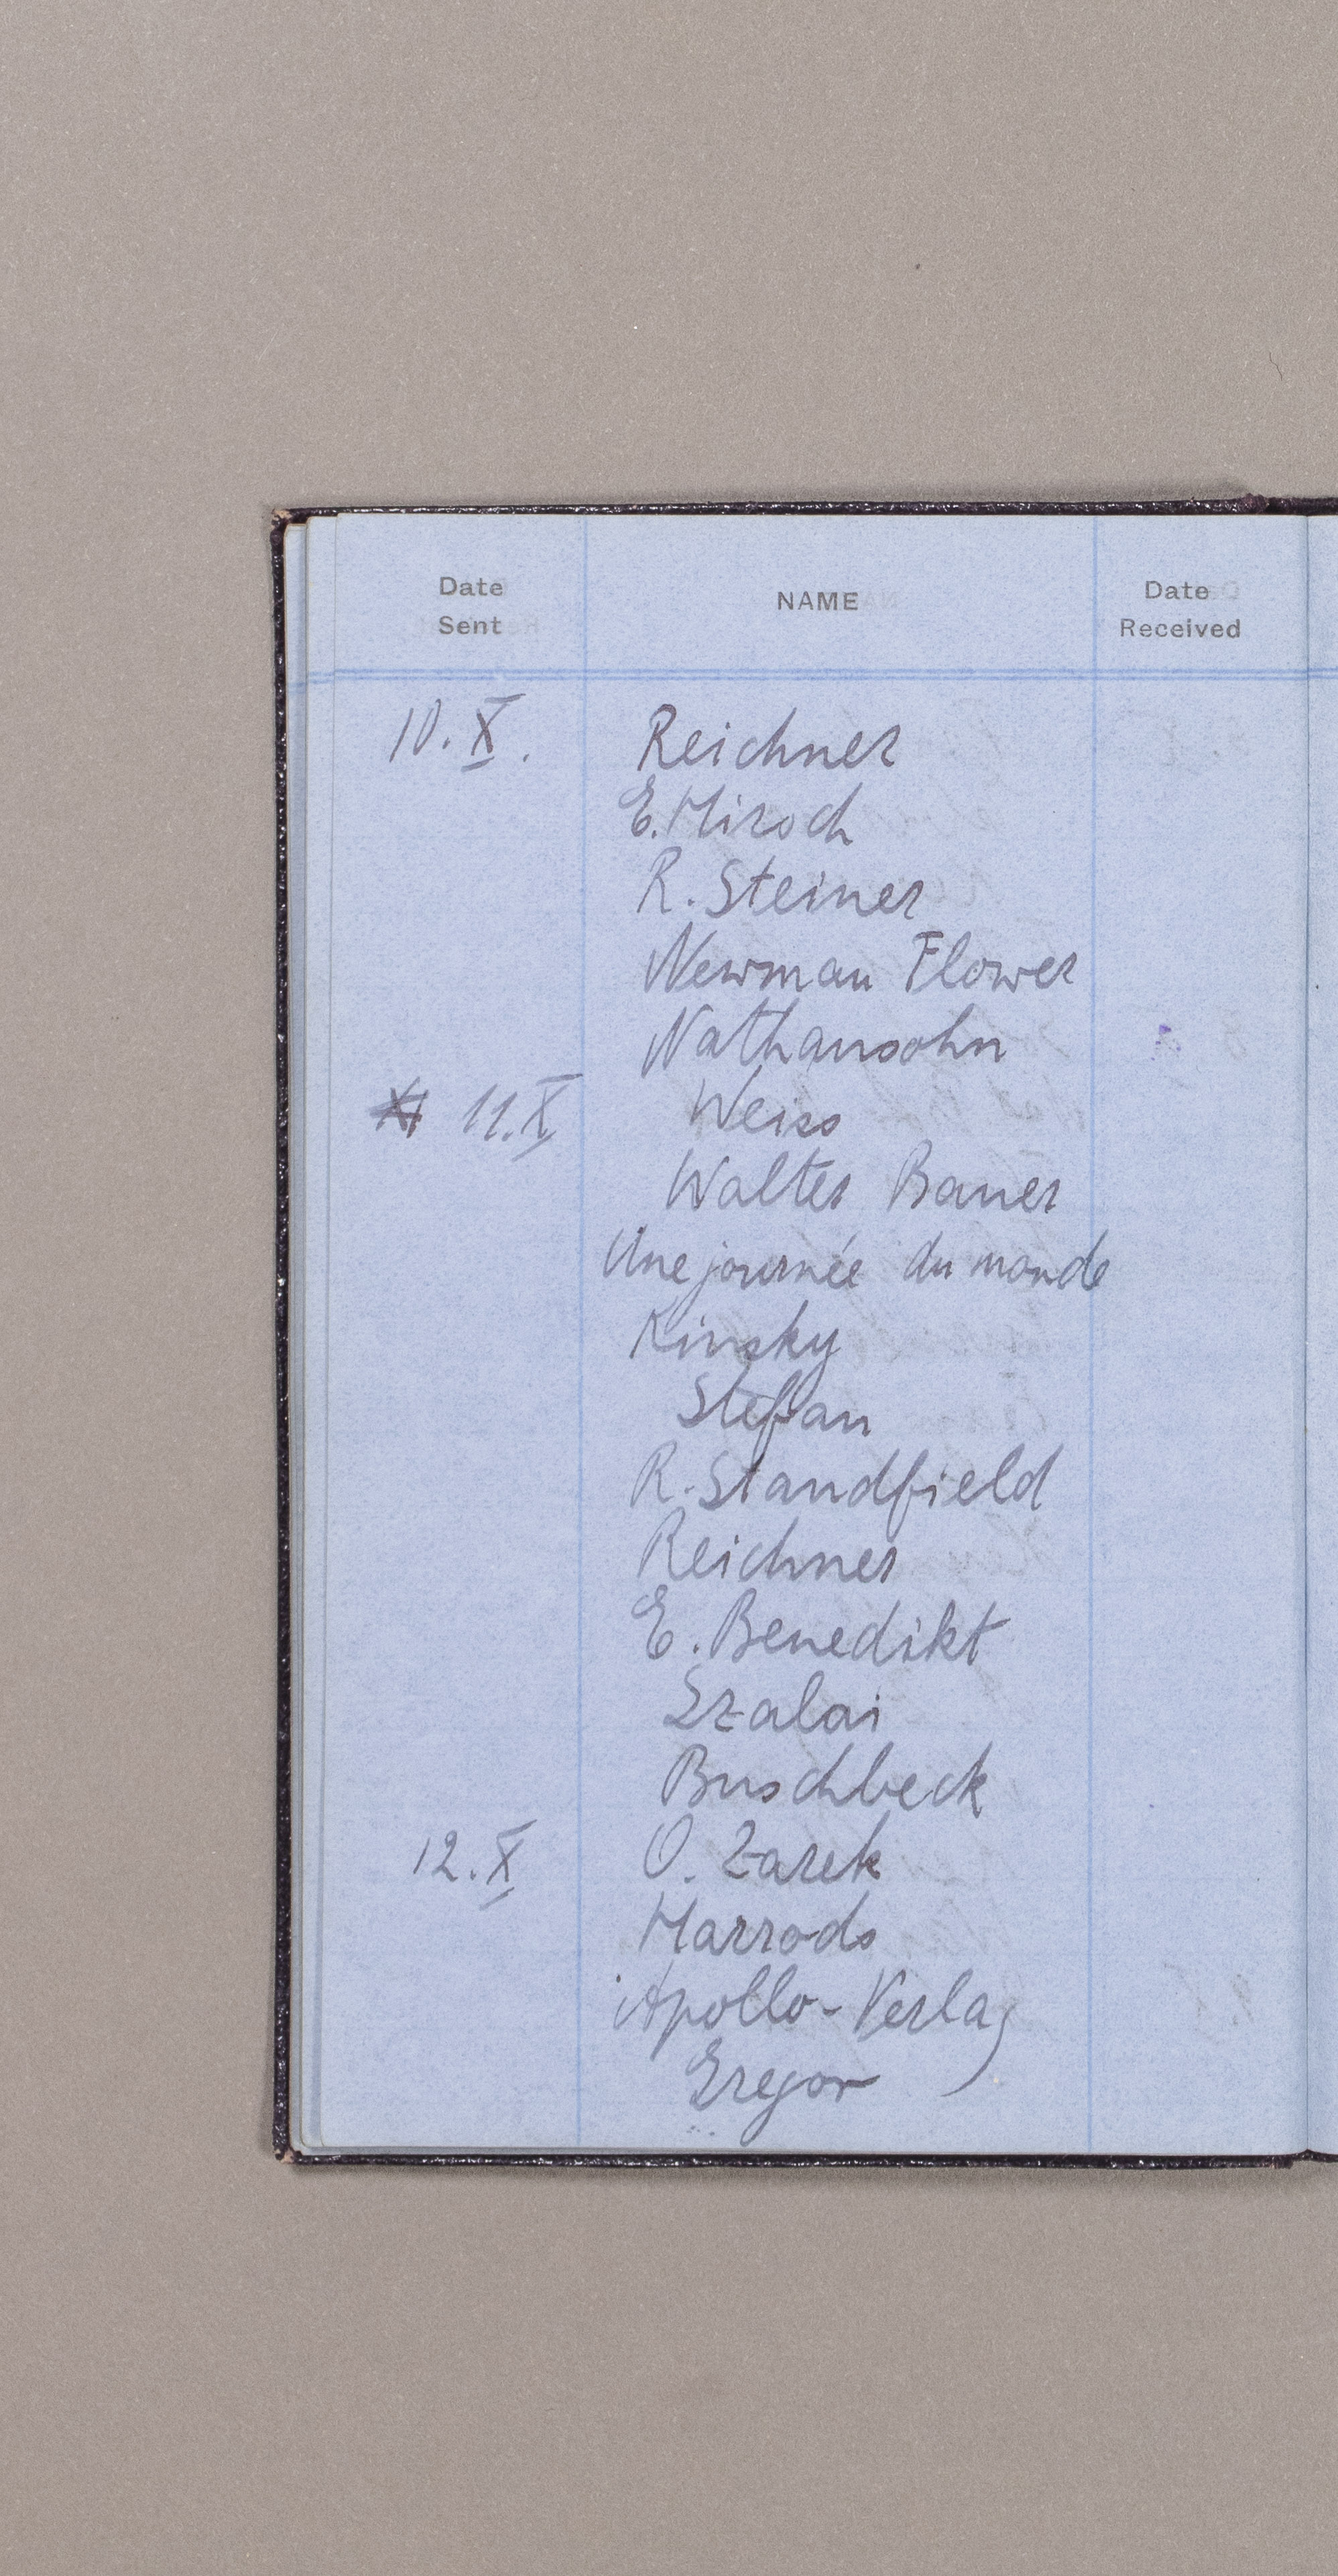 Date Sent NAME Date Received
10.X. Reichner
E. Hirsch
R. Steiner
Newman Flower
Nathansohn
11.X Weiss
Walter Bauer
Une journée du monde
Kinsky
Stefan
R. Standfield
Reichner
E. Benedikt
Szalai
Buschbeck
12.X O. Zarek
Harrods
Apollo-Verlag
Gregor